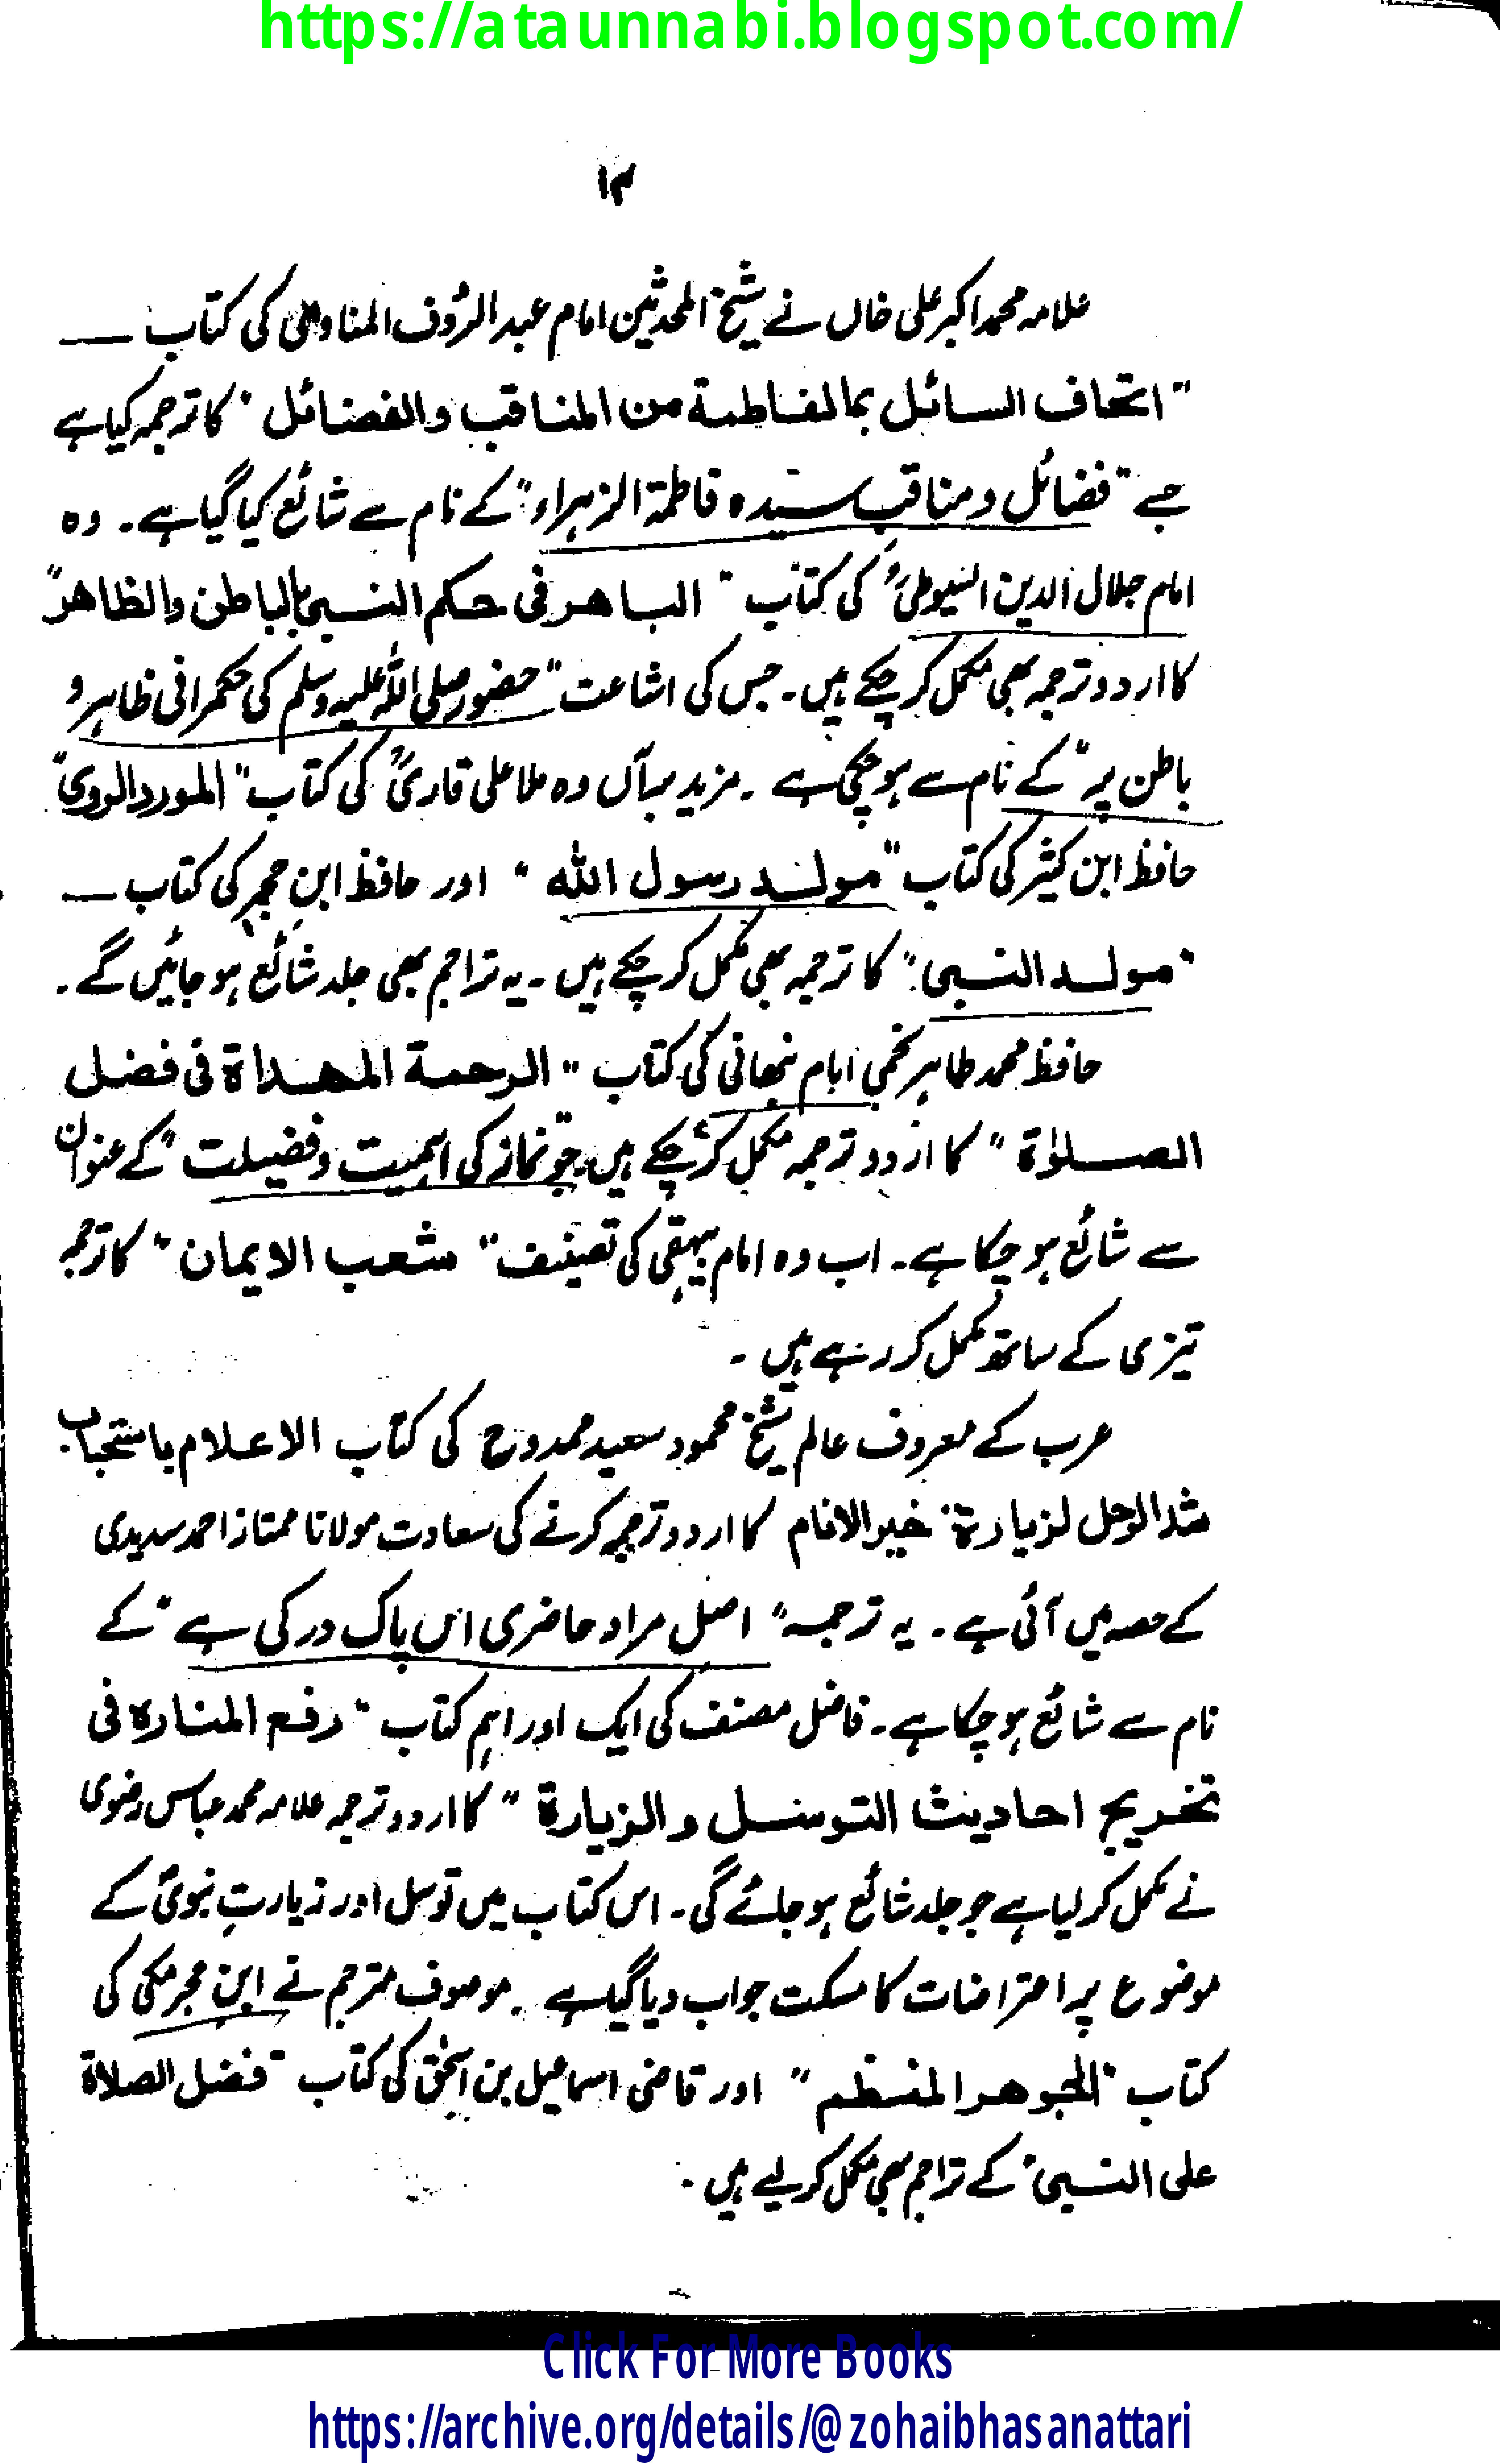 https://ataunnabi.blogspot.com/
۱۴
علامہ محمد اکبر علی خاں نے شیخ المحدثین امام عبد الرؤف المناوی کی کتاب —
"اتحاف السائل بما لفاطمة من المناقب والفضائل" کا ترجمہ کیا ہے
جسے "فضائل و مناقب سیدہ فاطمۃ الزہراء" کے نام سے شائع کیا گیا ہے۔ وہ
امام جلال الدین السیوطیؒ کی کتاب "الباهر فی حکم النبی بالباطن والظاهر"
کا اردو ترجمہ بھی مکمل کر چکے ہیں۔ جس کی اشاعت "حضور صلی اللہ علیہ وسلم کی حکمرانی ظاہر و
باطن پر" کے نام سے ہو چکی ہے۔ مزید برآں وہ ملا علی قاریؒ کی کتاب "المورد الروی"
حافظ ابن کثیر کی کتاب "مولد رسول الله" اور حافظ ابنِ حجر کی کتاب —
"مولد النبی" کا ترجمہ بھی مکمل کر چکے ہیں۔ یہ تراجم بھی جلد شائع ہو جائیں گے۔
حافظ محمد طاہر نجمی امام نبھانی کی کتاب "الرحمة المهداة فی فضل
الصلوٰة" کا اردو ترجمہ مکمل کر چکے ہیں۔ جو "نماز کی اہمیت و فضیلت" کے عنوان
سے شائع ہو چکا ہے۔ اب وہ امام بیہقی کی تصنیف "شعب الایمان" کا ترجمہ
تیزی کے ساتھ مکمل کر رہے ہیں۔
عرب کے معروف عالم شیخ محمود سعید ممدوح کی کتاب الاعلام باستحباب
شد الرحل لزیارة خیر الانام کا اردو ترجمہ کرنے کی سعادت مولانا ممتاز احمد سدیدی
کے حصہ میں آئی ہے۔ یہ ترجمہ "اصل مراد حاضری اس پاک در کی ہے" کے
نام سے شائع ہو چکا ہے۔ فاضل مصنف کی ایک اور اہم کتاب "رفع المنارة فی
تخریج احادیث التوسل والزیارة" کا اردو ترجمہ علامہ محمد عباس رضوی
نے مکمل کر لیا ہے جو جلد شائع ہو جائے گی۔ اس کتاب میں توسل اور زیارتِ نبویؐ کے
موضوع پر اعتراضات کا مسکت جواب دیا گیا ہے۔ موصوف مترجم نے ابن حجر مکی کی
کتاب "الجوهر المنظم" اور قاضی اسماعیل بن اسحٰق کی کتاب "فضل الصلاة
علی النبی" کے تراجم بھی مکمل کر لیے ہیں۔
Click For More Books
https://archive.org/details/@zohaibhasanattari